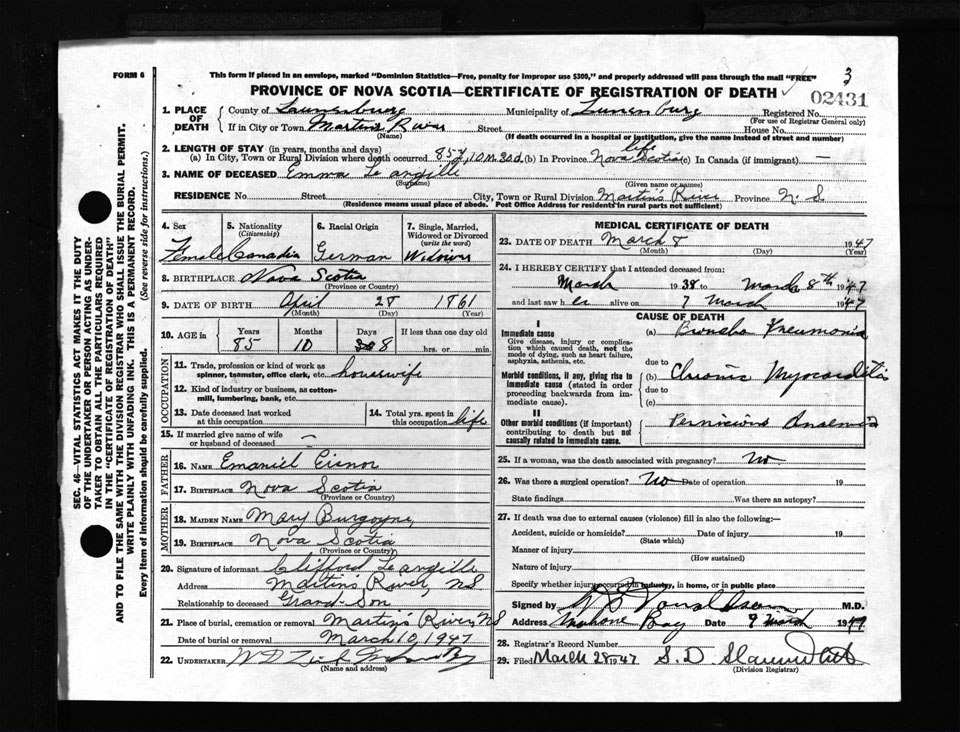 FORM 6
This form if placed in an envelope, marked "Dominion Statistics—Free, penalty for improper use $300," and properly addressed will pass through the mail "FREE"
3
PROVINCE OF NOVA SCOTIA—CERTIFICATE OF REGISTRATION OF DEATH
02431
1. PLACE OF DEATH
County of Lunenburg Municipality of Lunenburg Registered No.
(For use of Registrar General only)
If in City or Town Martins River Street House No.
(Name) (If death occurred in a hospital or institution, give the name instead of street and number)
2. LENGTH OF STAY (in years, months and days)
(a) In City, Town or Rural Division where death occurred 85 y, 10 m. 20 d. (b) In Province life Nova Scotia (c) In Canada (if immigrant) —
3. NAME OF DECEASED Emma Le angille
(Surname) (Given name or names)
RESIDENCE No. Street City, Town or Rural Division Martin's River Province N. S
(Residence means usual place of abode. Post Office Address for residents in rural parts not sufficient)
4. Sex Female
5. Nationality (Citizenship) Canadia
6. Racial Origin German
7. Single, Married, Widowed or Divorced (write the word) Widower
8. BIRTHPLACE Nova Scotia
(Province or Country)
9. DATE OF BIRTH April 28 1861
(Month) (Day) (Year)
10. AGE in Years Months Days If less than one day old
85 10 8 hrs. or min.
OCCUPATION
11. Trade, profession or kind of work as spinner, teamster, office clerk, etc. housewife
12. Kind of industry or business, as cotton-mill, lumbering, bank, etc.
13. Date deceased last worked at this occupation
14. Total yrs. spent in this occupation life
15. If married give name of wife or husband of deceased —
FATHER
16. NAME Emaniel Eisnor
17. BIRTHPLACE Nova Scotia
(Province or Country)
MOTHER
18. MAIDEN NAME Mary Burgoyne
19. BIRTHPLACE Nova Scotia
(Province or Country)
20. Signature of informant Clifford Le angille
Address Martin's River, NS
Relationship to deceased Grand Son
21. Place of burial, cremation or removal Martin's River, NS
Date of burial or removal March 10, 1947
22. UNDERTAKER W D
(Name and address)
MEDICAL CERTIFICATE OF DEATH
23. DATE OF DEATH March 8 1947
(Month) (Day) (Year)
24. I HEREBY CERTIFY that I attended deceased from:
March 1938 to March 8th 1947
and last saw her alive on 7 March 1947
CAUSE OF DEATH
I
Immediate cause (a) Broncho Pneumonia
Give disease, injury or complication which caused death, not the mode of dying, such as heart failure, asphyxia, asthenia, etc.
due to
Morbid conditions, if any, giving rise to immediate cause (stated in order proceeding backwards from immediate cause).
(b) Chronic Myocarditis
due to
(c)
II
Other morbid conditions (if important) contributing to death but not causally related to immediate cause.
Pernicious Anaemia
25. If a woman, was the death associated with pregnancy? No
26. Was there a surgical operation? No Date of operation 19
State findings Was there an autopsy?
27. If death was due to external causes (violence) fill in also the following:—
Accident, suicide or homicide? Date of injury 19
(State which)
Manner of injury
(How sustained)
Nature of injury
Specify whether injury occurred in industry, in home, or in public place
Signed by M.D.
Address Mahone Bay Date 9 March 1947
28. Registrar's Record Number
29. Filed March 28 1947 S. D.
(Division Registrar)
SEC. 46—VITAL STATISTICS ACT MAKES IT THE DUTY OF THE UNDERTAKER OR PERSON ACTING AS UNDERTAKER TO OBTAIN ALL THE PARTICULARS REQUIRED IN THE "CERTIFICATE OF REGISTRATION OF DEATH"
AND TO FILE THE SAME WITH THE DIVISION REGISTRAR WHO SHALL ISSUE THE BURIAL PERMIT.
WRITE PLAINLY WITH UNFADING INK. THIS IS A PERMANENT RECORD.
Every item of information should be carefully supplied. (See reverse side for instructions.)